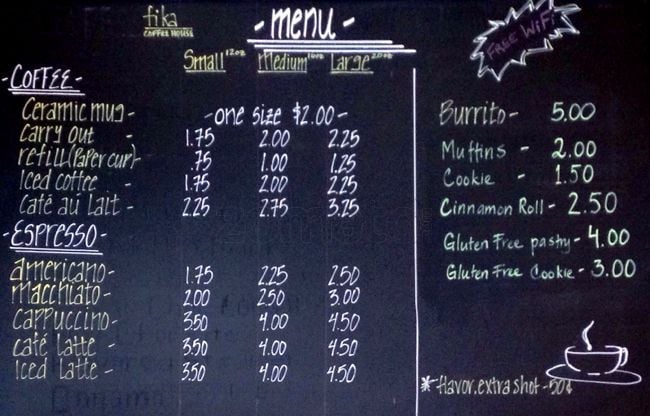 fika
COFFEE HOUSE
- menu -
Small 12oz Medium 16oz Large 20oz
- COFFEE -
Ceramic mug - - one size $2.00 -
Carry out - 1.75 2.00 2.25
refill (paper cup) - .75 1.00 1.25
Iced coffee - 1.75 2.00 2.25
Café au lait - 2.25 2.75 3.25
- ESPRESSO -
americano - 1.75 2.25 2.50
macchiato - 2.00 2.50 3.00
cappuccino - 3.50 4.00 4.50
café latte - 3.50 4.00 4.50
Iced latte - 3.50 4.00 4.50
FREE WiFi
Burrito - 5.00
Muffins - 2.00
Cookie - 1.50
Cinnamon Roll - 2.50
Gluten Free pastry - 4.00
Gluten Free Cookie - 3.00
* flavor. extra shot - 50¢